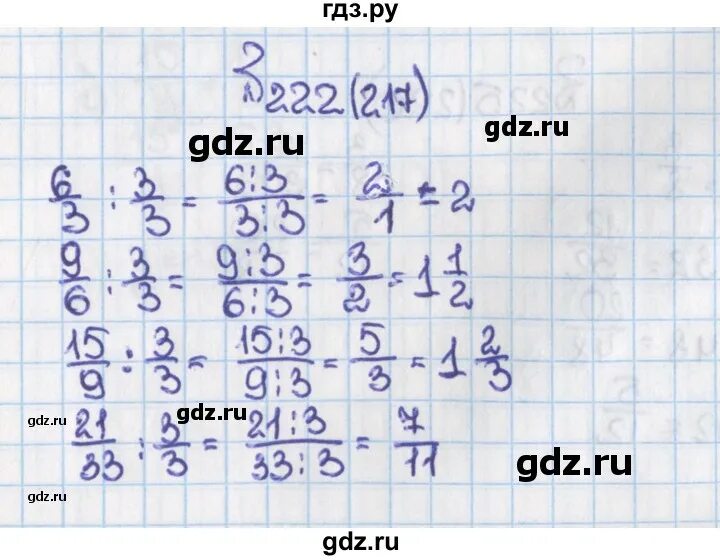 гдз.ру
№222(217)
gdz.ru
gdz.ru
6/3 : 3/3 = 6:3/3:3 = 2/1 = 2
9/6 : 3/3 = 9:3/6:3 = 3/2 = 1 1/2
15/9 : 3/3 = 15:3/9:3 = 5/3 = 1 2/3
gdz.ru
gdz.ru
21/33 : 3/3 = 21:3/33:3 = 7/11
gdz.ru
gdz.ru
gdz.ru